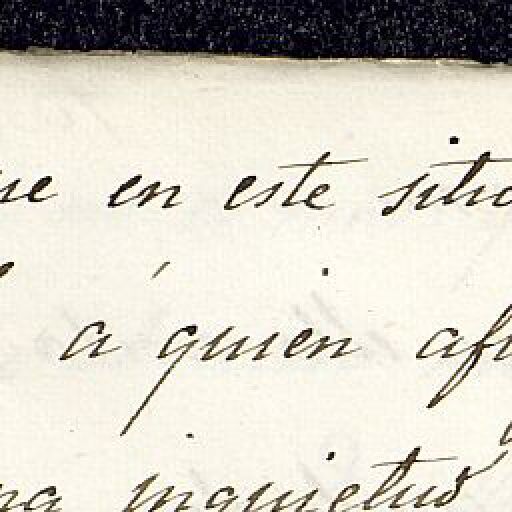 ue en este sitio
á quien af
na inquietud